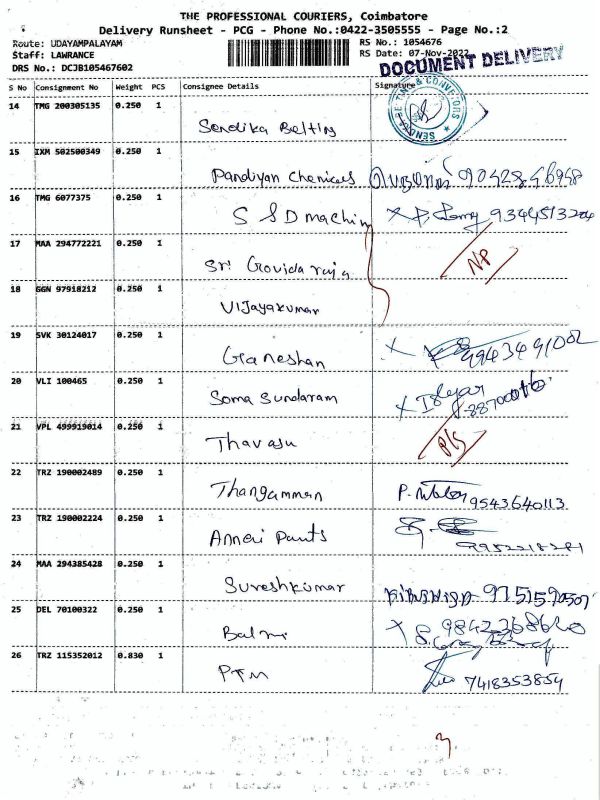 THE PROFESSIONAL COURIERS, Coimbatore
Delivery Runsheet - PCG - Phone No.:0422-3505555 - Page No.:2
Route: UDAYAMPALAYAM RS No.: 1054676
Staff: LAWRANCE RS Date: 07-Nov-2022
DRS No.: DCJB105467602
DOCUMENT DELIVERY
S No Consignment No Weight PCS Consignee Details Signature
14 TMG 200305135 0.250 1
Sendika Belting
15 IXM 502500349 0.250 1
Pandiyan Chemicals 9042846948
16 TMG 6077375 0.250 1
S S D machin 9344513204
17 MAA 294772221 0.250 1
Sri Govindaraja NP
18 GGN 97918212 0.250 1
Vijayakumar
19 SVK 30124017 0.250 1
Ganeshan 9943491002
20 VLI 100465 0.250 1
Soma Sundaram
21 VPL 499919014 0.250 1
Thavasu
22 TRZ 190002489 0.250 1
Thangamman 9543640113
23 TRZ 190002224 0.250 1
Annai Paints 9952218281
24 MAA 294385428 0.250 1
Sureshkumar
25 DEL 70100322 0.250 1
26 TRZ 115352012 0.830 1
PTM 7418353854
3